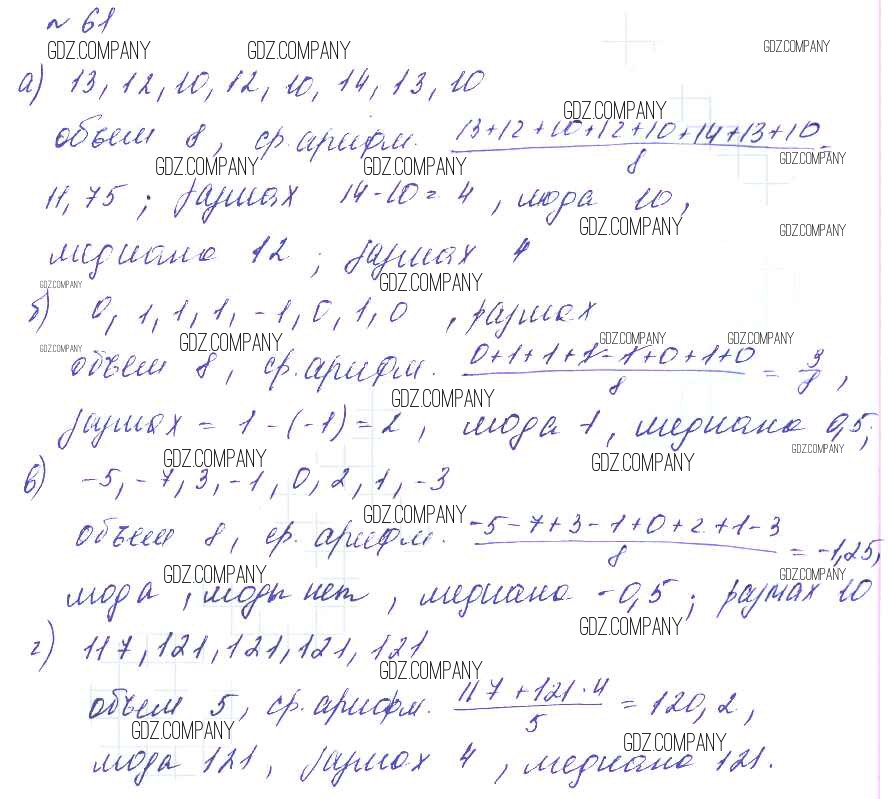 № 61
GDZ.COMPANY GDZ.COMPANY GDZ.COMPANY
а) 13, 12, 10, 12, 10, 14, 13, 10
GDZ.COMPANY
объем 8, ср. арифм. 13+12+10+12+10+14+13+10 / 8 =
GDZ.COMPANY GDZ.COMPANY GDZ.COMPANY
11,75 ; размах 14-10=4 , мода 10,
GDZ.COMPANY GDZ.COMPANY
медиана 12 ; размах 4
GDZ.COMPANY GDZ.COMPANY
б) 0, 1, 1, 1, -1, 0, 1, 0 , размах
GDZ.COMPANY GDZ.COMPANY GDZ.COMPANY GDZ.COMPANY
объем 8, ср. арифм. 0+1+1+1-1+0+1+0 / 8 = 3/8 ,
GDZ.COMPANY
размах = 1 - (-1) = 2 , мода 1 , медиана 0,5;
GDZ.COMPANY GDZ.COMPANY GDZ.COMPANY
в) -5, -7, 3, -1, 0, 2, 1, -3
GDZ.COMPANY
объем 8, ср. арифм. -5-7+3-1+0+2+1-3 / 8 = -1,25,
GDZ.COMPANY GDZ.COMPANY
мода , моды нет , медиана -0,5 ; размах 10
GDZ.COMPANY
г) 117, 121, 121, 121, 121
GDZ.COMPANY
объем 5, ср. арифм. 117+121·4 / 5 = 120,2 ,
GDZ.COMPANY GDZ.COMPANY
мода 121 , размах 4 , медиана 121.